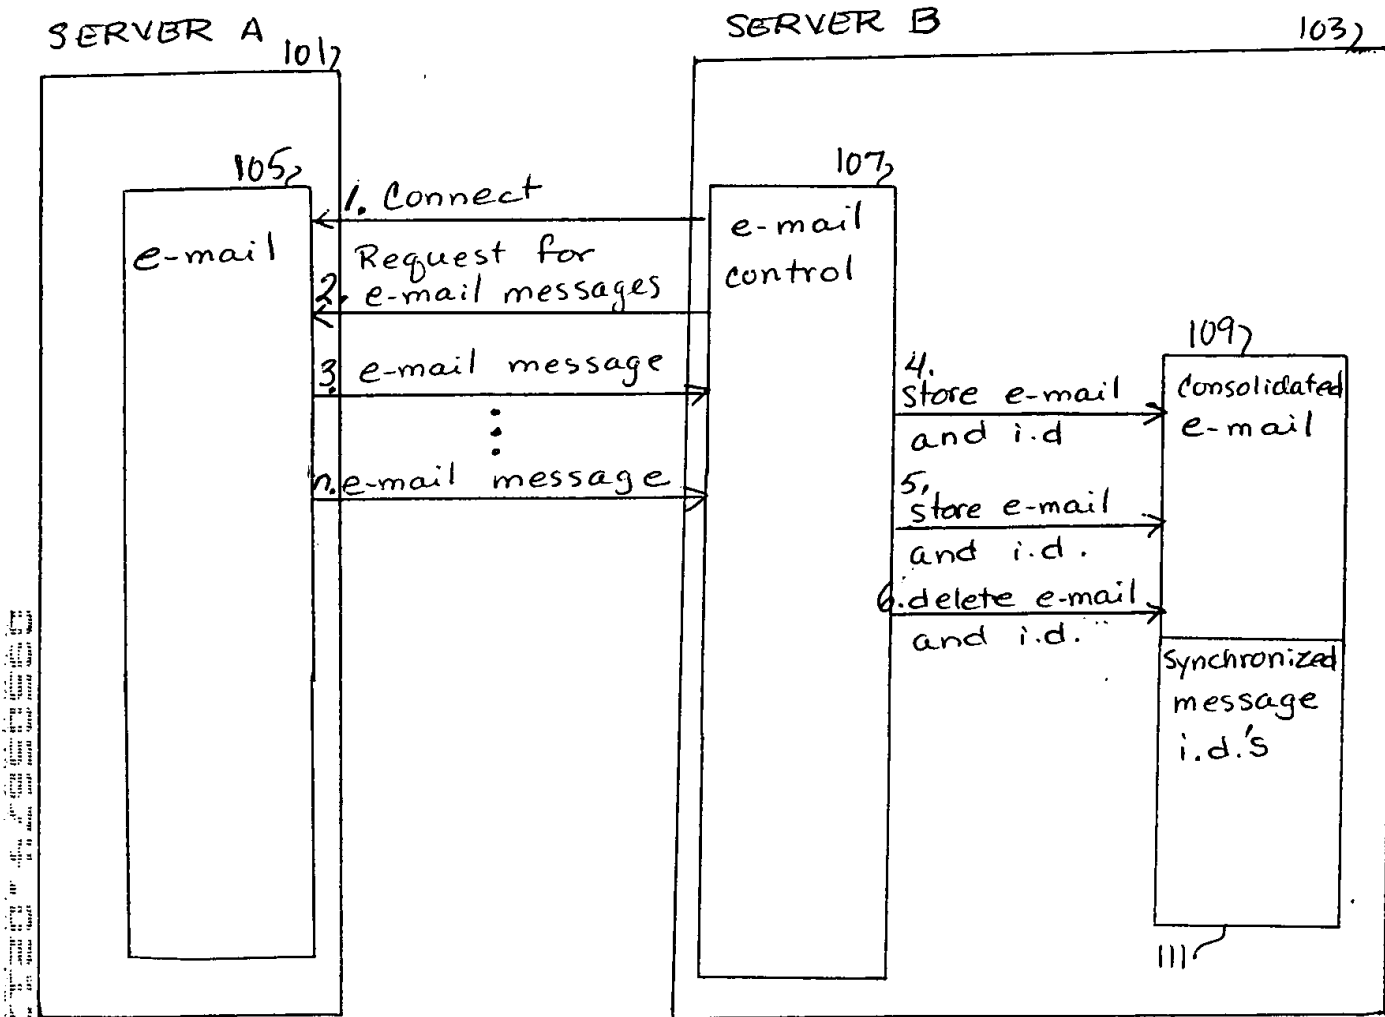 SERVER A
101
SERVER B
103
105
e-mail
1. Connect
Request for
2. e-mail messages
3. e-mail message
n. e-mail message
107
e-mail
control
4.
store e-mail
and i.d
5.
store e-mail
and i.d.
6. delete e-mail
and i.d.
109
Consolidated
e-mail
Synchronized
message
i.d.'s
111